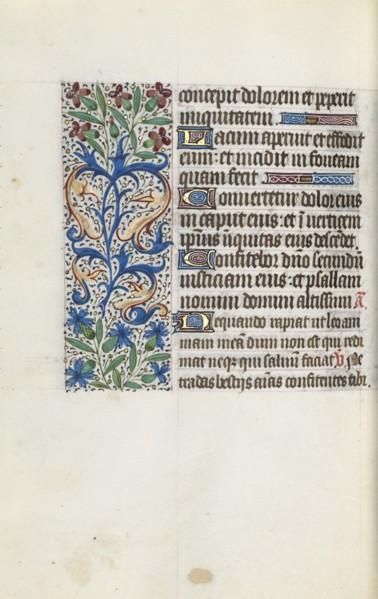 concepit dolorem et peperit
iniquitatem
Lacum aperuit et effodit
eum: et incidit in foueam
quam fecit
Conuertetur dolor eius
in caput eius: et ī uerticem
ipsius īiquitas eius descēdet.
Confitebor dn̄o secundū
iusticiam eius: et psallam
nomini domini altissimi A͞
Nequando rapiat ut leo aīam
mam meā dum non est qui redi
mat neqꝫ qui saluū faciat V̄ Ne
tradas bestijs aīas confitentes tibi.